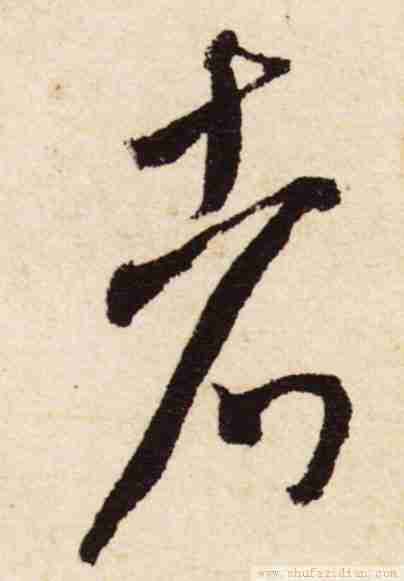 者
www.shufazidian.com